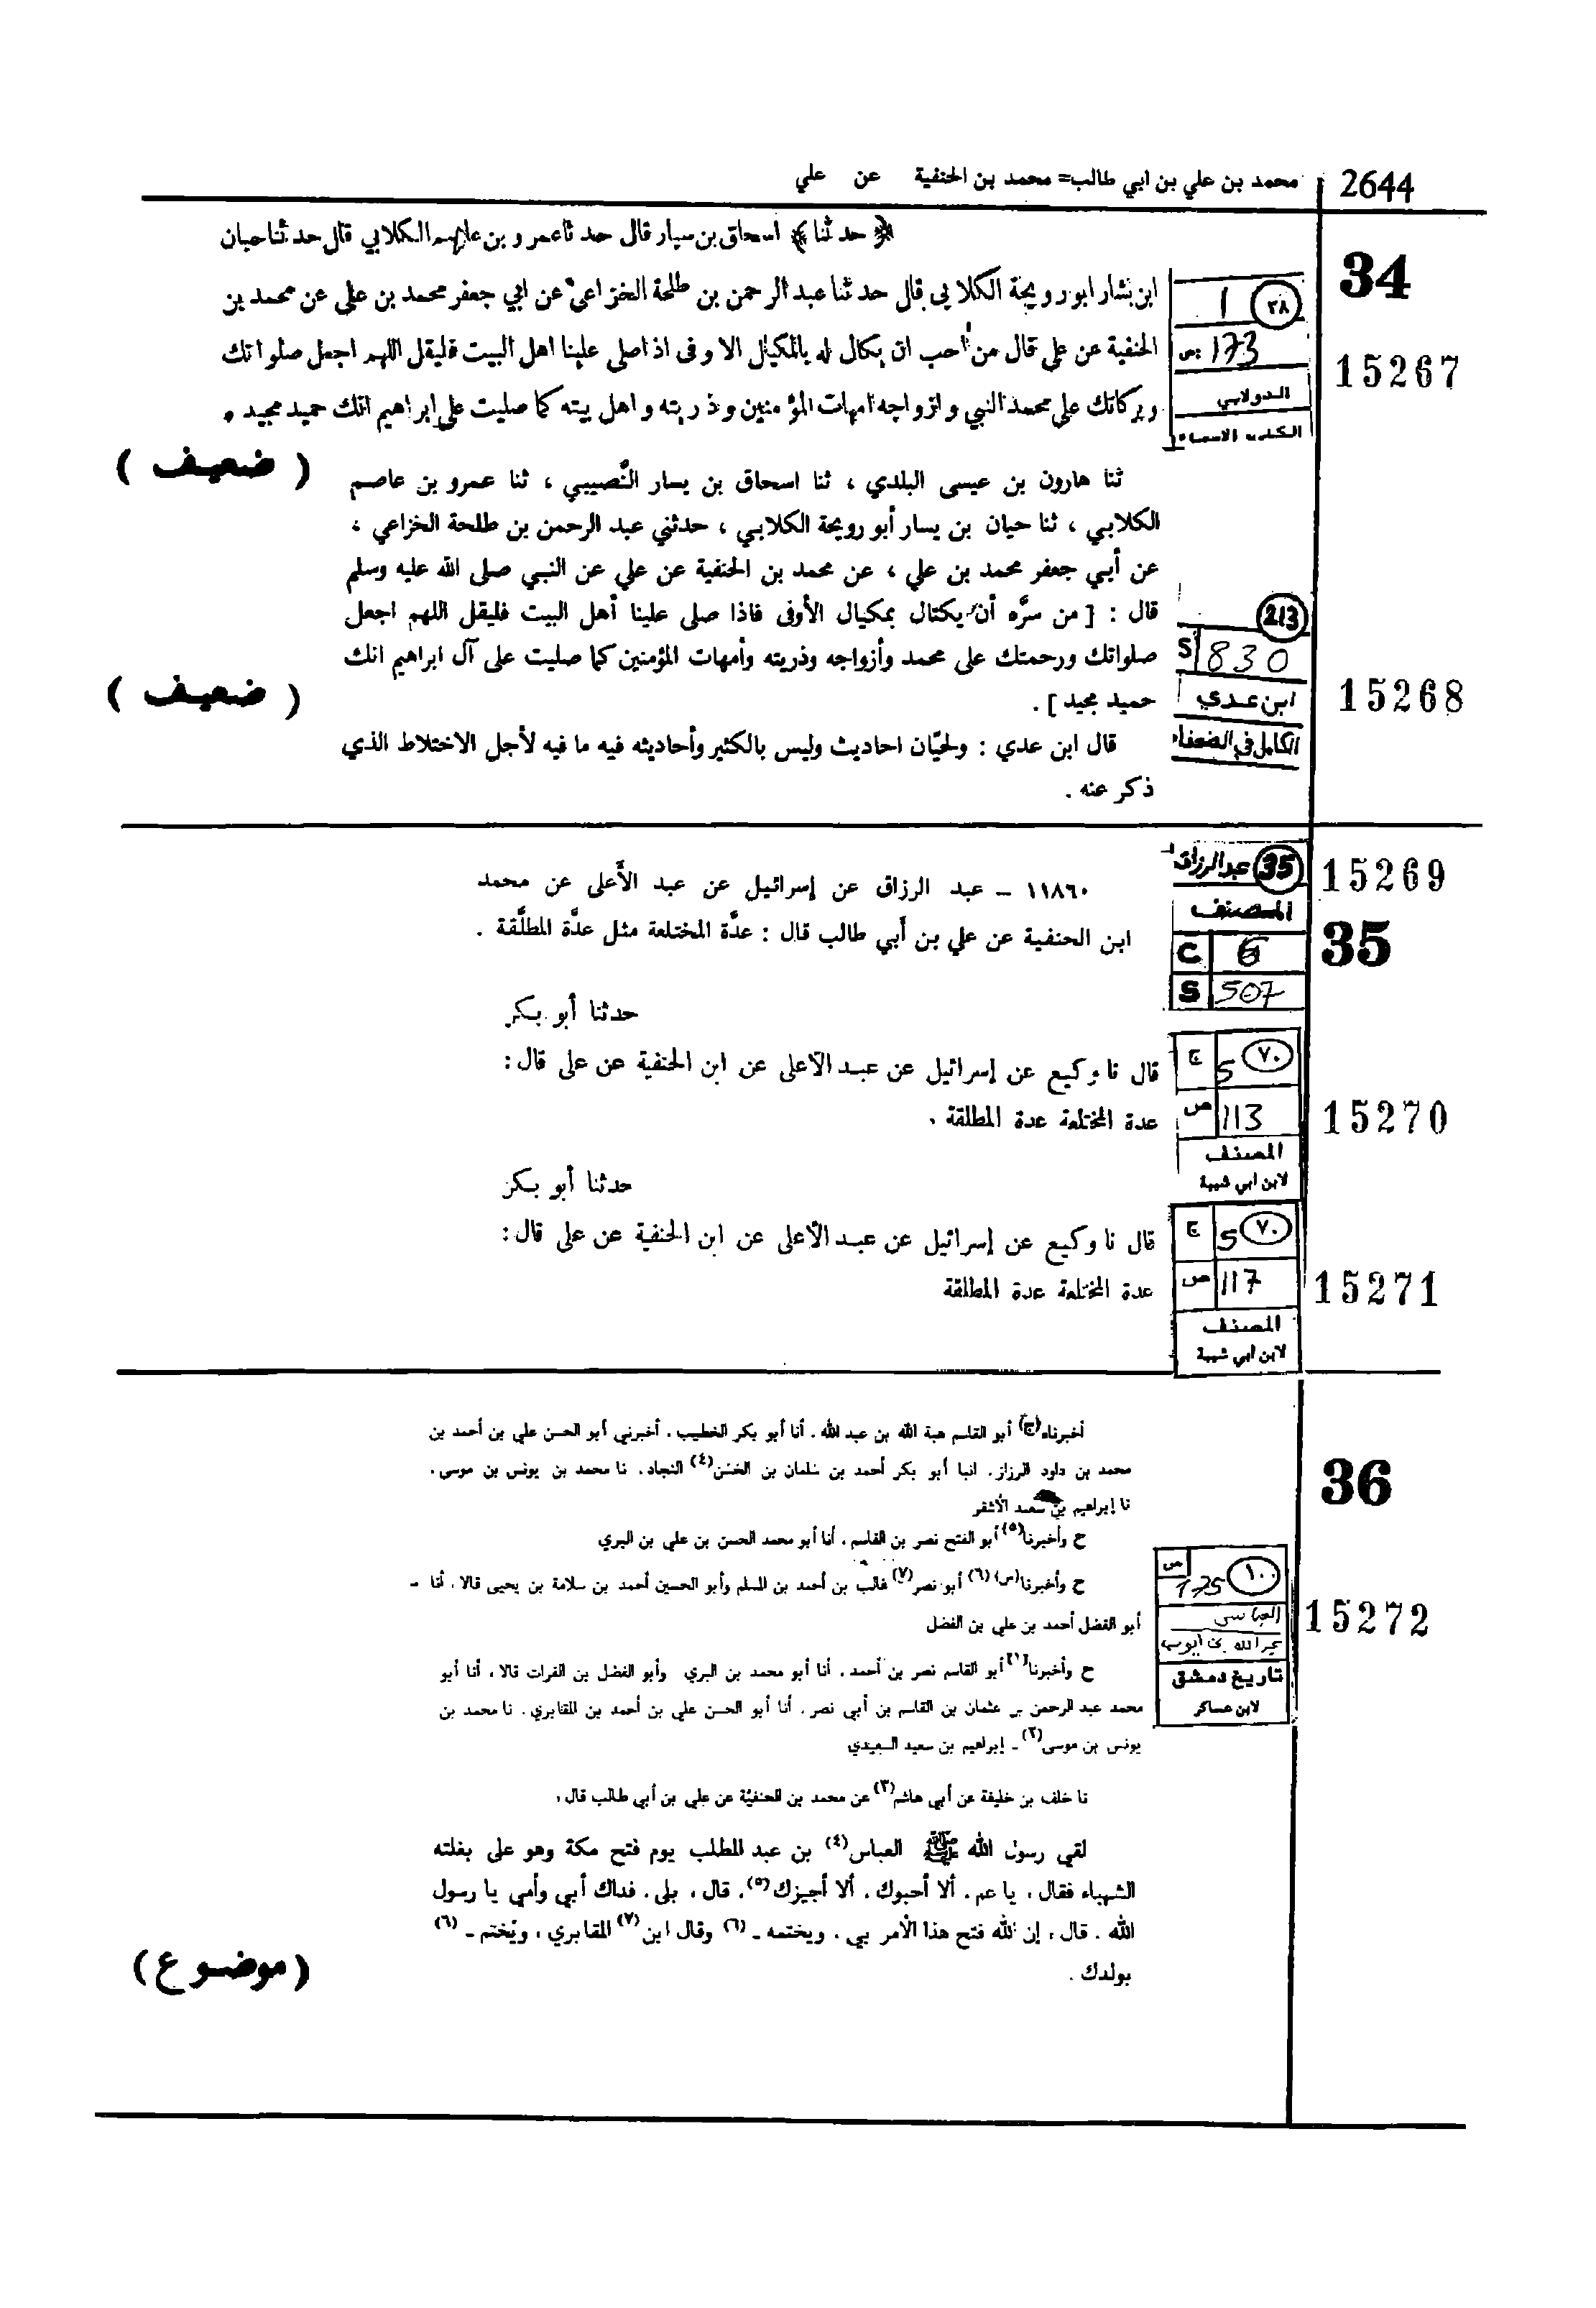 2644 محمد بن علي بن ابي طالب= محمد بن الحنفية عن علي
34
﴿ حدثنا ﴾ اسحاق بن سيار قال حدثنا عمرو بن عاصم الكلابي قال حدثنا حبان
ابن بشار ابو رويحة الكلابي قال حدثنا عبد الرحمن بن طلحة الخزاعي عن ابي جعفر محمد بن علي عن محمد بن
الحنفية عن علي قال من احب ان يكال له بالمكيال الاوفى اذا صلى علينا اهل البيت فليقل اللهم اجعل صلواتك
وبركاتك على محمد النبي وازواجه امهات المؤمنين وذريته واهل بيته كما صليت على ابراهيم انك حميد مجيد .
٣٨ 1
ص 173
الدولابي
الكنى والاسماء
15267
( ضعيف )
ثنا هارون بن عيسى البلدي ، ثنا اسحاق بن يسار النَّصيبي ، ثنا عمرو بن عاصم
الكلابي ، ثنا حيان بن يسار أبو رويحة الكلابي ، حدثني عبد الرحمن بن طلحة الخزاعي ،
عن أبي جعفر محمد بن علي ، عن محمد بن الحنفية عن علي عن النبي صلى الله عليه وسلم
قال : [ من سرَّه أن يكتال بمكيال الأوفى فاذا صلى علينا أهل البيت فليقل اللهم اجعل
صلواتك ورحمتك على محمد وأزواجه وذريته وأمهات المؤمنين كما صليت على آل ابراهيم انك
حميد مجيد ] .
قال ابن عدي : ولحيّان احاديث وليس بالكثير وأحاديثه فيه ما فيه لأجل الاختلاط الذي
ذكر عنه .
213
S 830
ابن عدي
الكامل في الضعفاء
15268
( ضعيف )
35 عبدالرزاق
المصنف
C 6
S 507
15269
35
١١٨٦٠ – عبد الرزاق عن إسرائيل عن عبد الأعلى عن محمد
ابن الحنفية عن علي بن أبي طالب قال : عدَّة المختلعة مثل عدَّة المطلَّقة .
حدثنا أبو بكر
قال نا وكيع عن إسرائيل عن عبد الأعلى عن ابن الحنفية عن على قال :
عدة المختلعة عدة المطلقة .
٧٠ 5 ج
113 ص
المصنف
لابن ابي شيبة
15270
حدثنا أبو بكر
قال نا وكيع عن إسرائيل عن عبد الأعلى عن ابن الحنفية عن على قال :
عدة المختلعة عدة المطلقة
٧٠ 5 ج
117 ص
المصنف
لابن ابي شيبة
15271
36
أخبرناه(ج) أبو القاسم هبة الله بن عبد الله ، أنا أبو بكر الخطيب ، أخبرني أبو الحسن علي بن أحمد بن
محمد بن داود الرزاز ، انبا أبو بكر أحمد بن سلمان بن الحسن(٤) النجاد ، نا محمد بن يونس بن موسى ،
نا إبراهيم بن سعيد الأشقر
ح وأخبرنا(٥) أبو الفتح نصر بن القاسم ، أنا أبو محمد الحسن بن علي بن البري
ح وأخبرنا(س) (٦) أبو نصر(٧) غالب بن أحمد بن المسلم وأبو الحسين أحمد بن سلامة بن يحيى قالا ، أنا –
أبو الفضل أحمد بن علي بن الفضل
ح وأخبرنا(١) أبو القاسم نصر بن أحمد ، أنا أبو محمد بن البري وأبو الفضل بن الفرات قالا ، أنا أبو
محمد عبد الرحمن بن عثمان بن القاسم بن أبي نصر ، أنا أبو الحسن علي بن أحمد بن المقابري ، نا محمد بن
يونس بن موسى(٢) – إبراهيم بن سعيد السعيدي
نا خلف بن خليفة عن أبي هاشم(٣) عن محمد بن الحنفيّة عن علي بن أبي طالب قال ،
لقي رسول الله ﷺ العباس(٤) بن عبد المطلب يوم فتح مكة وهو على بغلته
الشهباء فقال ، يا عم ، ألا أحبوك ، ألا أجيزك(٥) ، قال ، بلى ، فداك أبي وأمي يا رسول
الله ، قال ، إن الله فتح هذا الأمر بي ، ويختمه – (٦) وقال ابن(٧) المقابري ، ويُختم – (٦)
بولدك .
١٠٠ ص
175
العباس
تاريخ دمشق
لابن عساكر
15272
( موضوع )